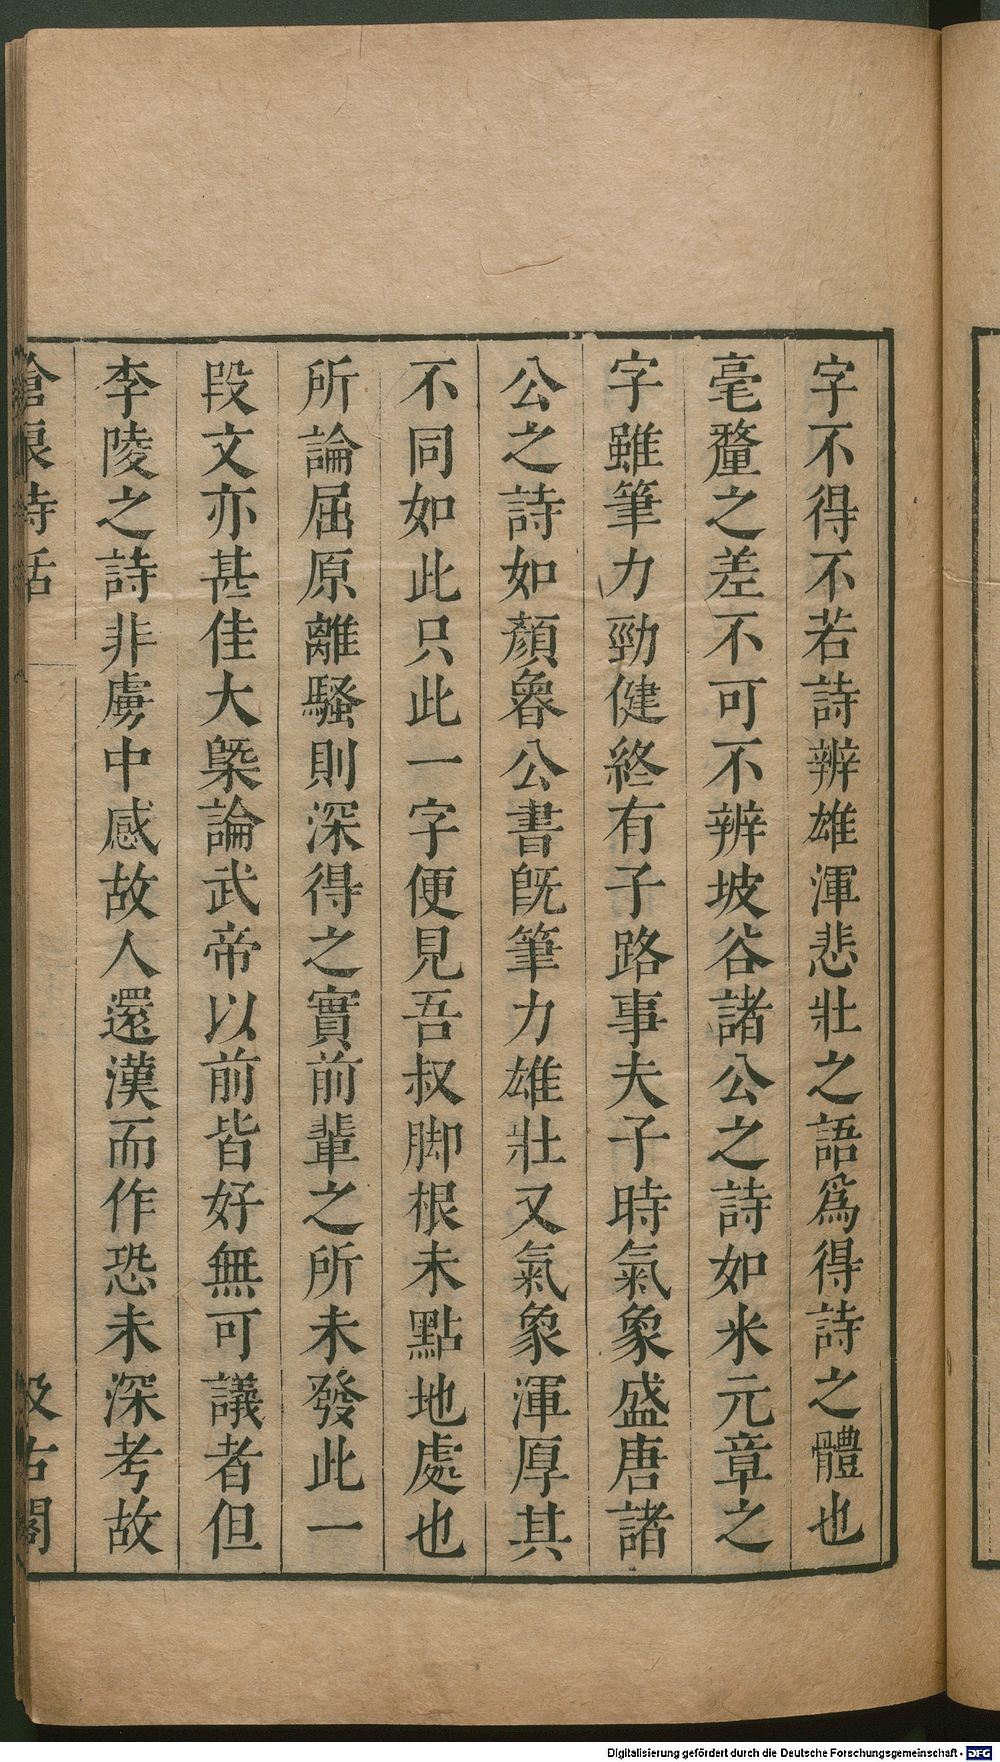 字不得不若詩辨雄渾悲壯之語爲得詩之體也
毫釐之差不可不辨坡谷諸公之詩如米元章之
字雖筆力勁健終有子路事夫子時氣象盛唐諸
公之詩如顏魯公書旣筆力雄壯又氣象渾厚其
不同如此只此一字便見吾叔脚根未點地處也
所論屈原離騷則深得之實前輩之所未發此一
段文亦甚佳大槩論武帝以前皆好無可議者但
李陵之詩非虜中感故人還漢而作恐未深考故
滄浪詩話
汲古閣
Digitalisierung gefördert durch die Deutsche Forschungsgemeinschaft - DFG